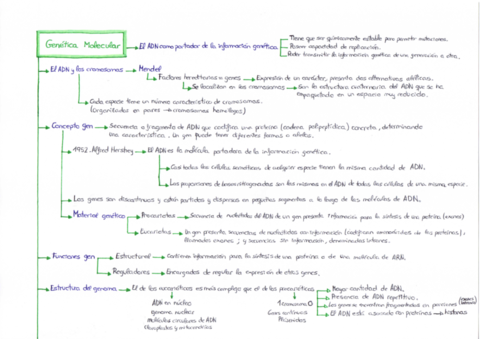 Genética Molecular
El ADN como portador de la información genética
Tiene que ser químicamente estable para permitir mutaciones.
Poseer capacidad de replicación.
Poder transmitir la información genética de una generación a otra.
El ADN y los cromosomas
Mendel
Factores hereditarios o genes
Expresión de un carácter, presenta dos alternativas alélicas.
Se localizan en los cromosomas
Son la estructura cuaternaria del ADN que se ha
empaquetado en un espacio muy reducido.
Cada especie tiene un número característico de cromosomas.
(organizados en pares → cromosomas homólogos)
Concepto gen
Secuencia o fragmento de ADN que codifica una proteína (cadena polipeptídica) concreta, determinando
una característica. Un gen puede tener diferentes formas o alelos.
1952. Alfred Hershey
El ADN es la molécula portadora de la información genética.
Casi todas las células somáticas de cualquier especie tienen la misma cantidad de ADN.
Las proporciones de bases nitrogenadas son las mismas en el ADN de todas las células de una misma especie.
Los genes son discontinuos y están partidos y dispersos en pequeños segmentos a lo largo de las moléculas de ADN.
Material genético
Procariotas
Secuencia de nucleótidos del ADN de un gen presenta información para la síntesis de una proteína (exones)
Eucariotas
Un gen presenta secuencias de nucleótidos con información (codifican aminoácidos de las proteínas),
llamadas exones; y secuencias sin información, denominadas intrones.
Funciones gen
Estructural
Contienen información para la síntesis de una proteína o de una molécula de ARN.
Reguladores
Encargados de regular la expresión de otros genes.
Estructura del genoma
El de los eucarióticos es más complejo que el de los procarióticos
Mayor cantidad de ADN.
Presencia de ADN repetitivo.
Los genes se encuentran fragmentados en porciones
El ADN está asociado con proteínas → histonas
ADN en núcleo
genoma nuclear
Moléculas circulares de ADN
Cloroplastos y mitocondrias
1 cromosoma
Plásmidos